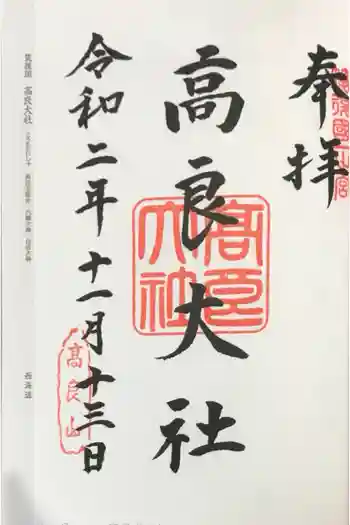 奉拝
筑後國一宮
高良大社
高良大社
令和二年十一月十三日
高良山
筑後国 高良大社
西海道